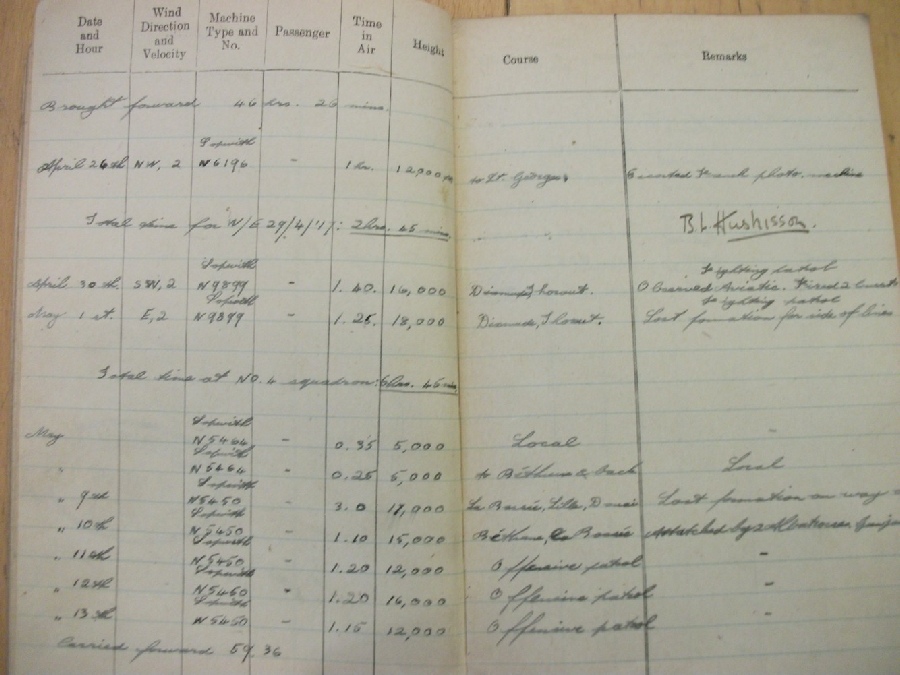 Date and Hour Wind Direction and Velocity Machine Type and No. Passenger Time in Air Height Course Remarks
Brought forward 46 hrs. 26 mins.
Sopwith
April 26th NW, 2 N6196 - 1 hr. 12,000 to St. Georges Escorted French photo. machine
Total time for W/E 29/4/17: 2hrs. 45 mins.
B.L. Huskisson.
Sopwith Fighting patrol
April 30th SW, 2 N9899 - 1.40. 16,000 Observed Aviatic. Fired 2 bursts
Sopwith Fighting patrol
May 1st. E, 2 N9899 - 1.25. 18,000 Lost formation far side of lines
Total time at No. 4 squadron: 6hrs. 45 mins
Sopwith
May N5464 - 0.35 5,000 Local -
Sopwith
" N5464 - 0.25 5,000 to Béthune & back Local
Sopwith
" 9th N5450 - 3.0 17,000 La Bassée, Lille, Douai Lost formation on way
Sopwith
" 10th N5450 - 1.10 15,000 Béthune, La Bassée Attacked by 2 Albatross
Sopwith
" 11th N5450 - 1.20 12,000 Offensive patrol -
Sopwith
" 12th N5450 - 1.20 16,000 Offensive patrol -
Sopwith
" 13th N5450 - 1.15 12,000 Offensive patrol -
Carried forward 59.36